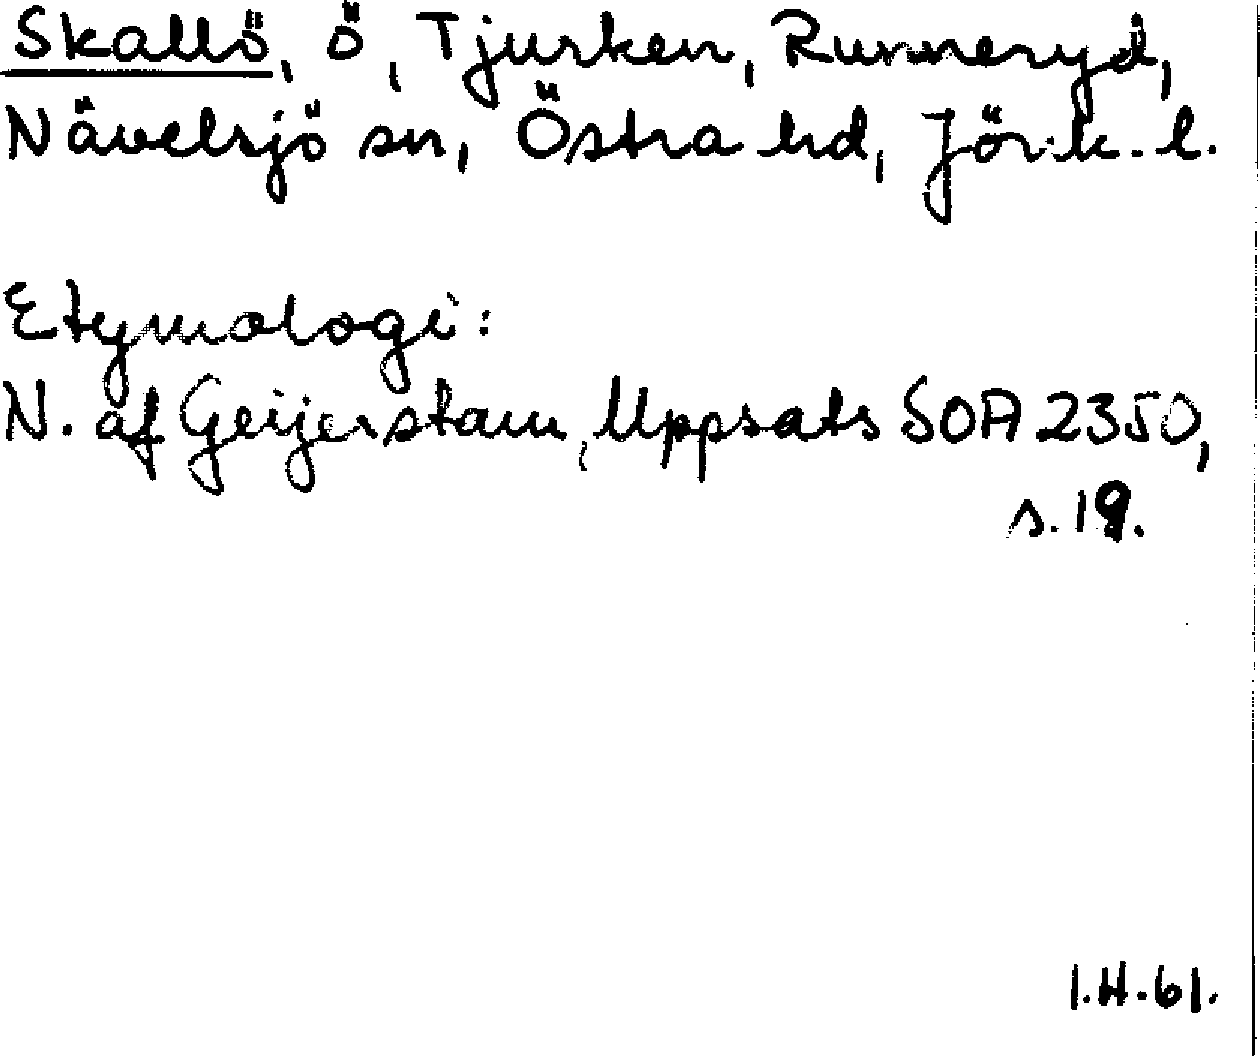 Skallö, ö, Tjurken, Runneryd,
Nävelsjö sn, Östra hd, Jönk. l.
Etymologi:
N. af Geijerstam, Uppsats SOA 2350,
s. 19.
I.H.61.